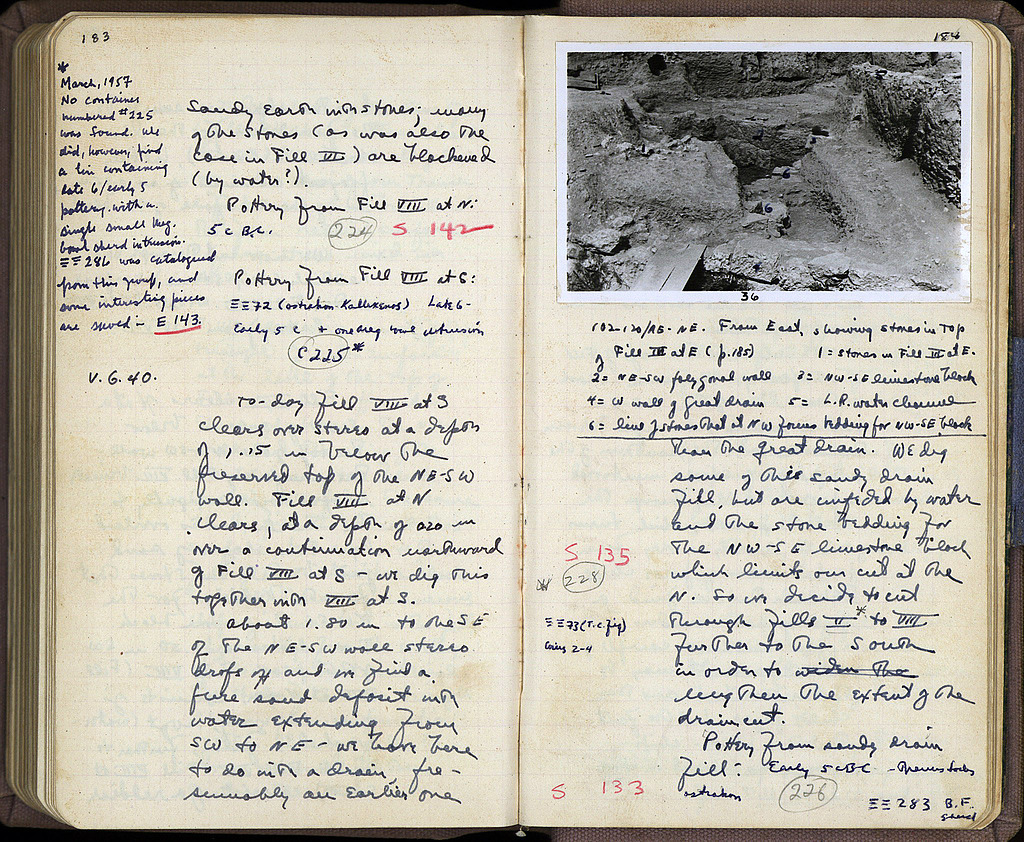 183
*
March, 1957
No container
numbered #225
was found. We
did, however, find
a tin containing
late 6/early 5
pottery, with a
single small Meg.
bowl sherd intrusion.
ΞΞ 286 was catalogued
from this group, and
some interesting pieces
are saved in E 143.
Sandy earth with stones; many
of the stones (as was also the
case in Fill VII) are blackened
(by water?).
Pottery from Fill VIII at N:
5 c B.C. 224 S 142
Pottery from Fill VIII at S:
ΞΞ 72 (ostrakon Kallixenos) Late 6 -
Early 5 c + one Meg. bowl intrusion
225*
V. 6. 40.
To-day Fill VIII at S
clears over stereo at a depth
of 1.15 m below the
preserved top of the NE-SW
wall. Fill VIII at N
clears, at a depth of 0.20 m
over a continuation northward
of Fill VIII at S - we dig this
together with VIII at S.
About 1.80 m to the SE
of the NE-SW wall stereo
drops off and we find a
fine sand deposit with
water extending from
SW to NE - we have here
to do with a drain, pre-
sumably an earlier one
184
6
6
36
102-120/ΛΕ-ΝΕ. From East, showing stones in top
of Fill III at E (p. 185) 1 = stones in Fill III at E.
2 = NE-SW polygonal wall 3 = NW-SE limestone block
4 = W wall of great drain 5 = L.R. water channel
6 = line of stones that at NW forms bedding for NW-SE block
than the great drain. We dig
some of this sandy drain
fill, but are impeded by water
and the stone bedding for
the NW-SE limestone block
which limits our cut at the
N. So we decide to cut
through fills II* to VIII
further to the South
in order to widen the
lengthen the extent of the
drain cut.
S 135
* 228
ΞΞ 73 (T.C. fig)
Coins 2-4
Pottery from sandy drain
fill: Early 5 c BC - Themistokles
ostrakon 226
S 133
ΞΞ 283 B.F.
sherd